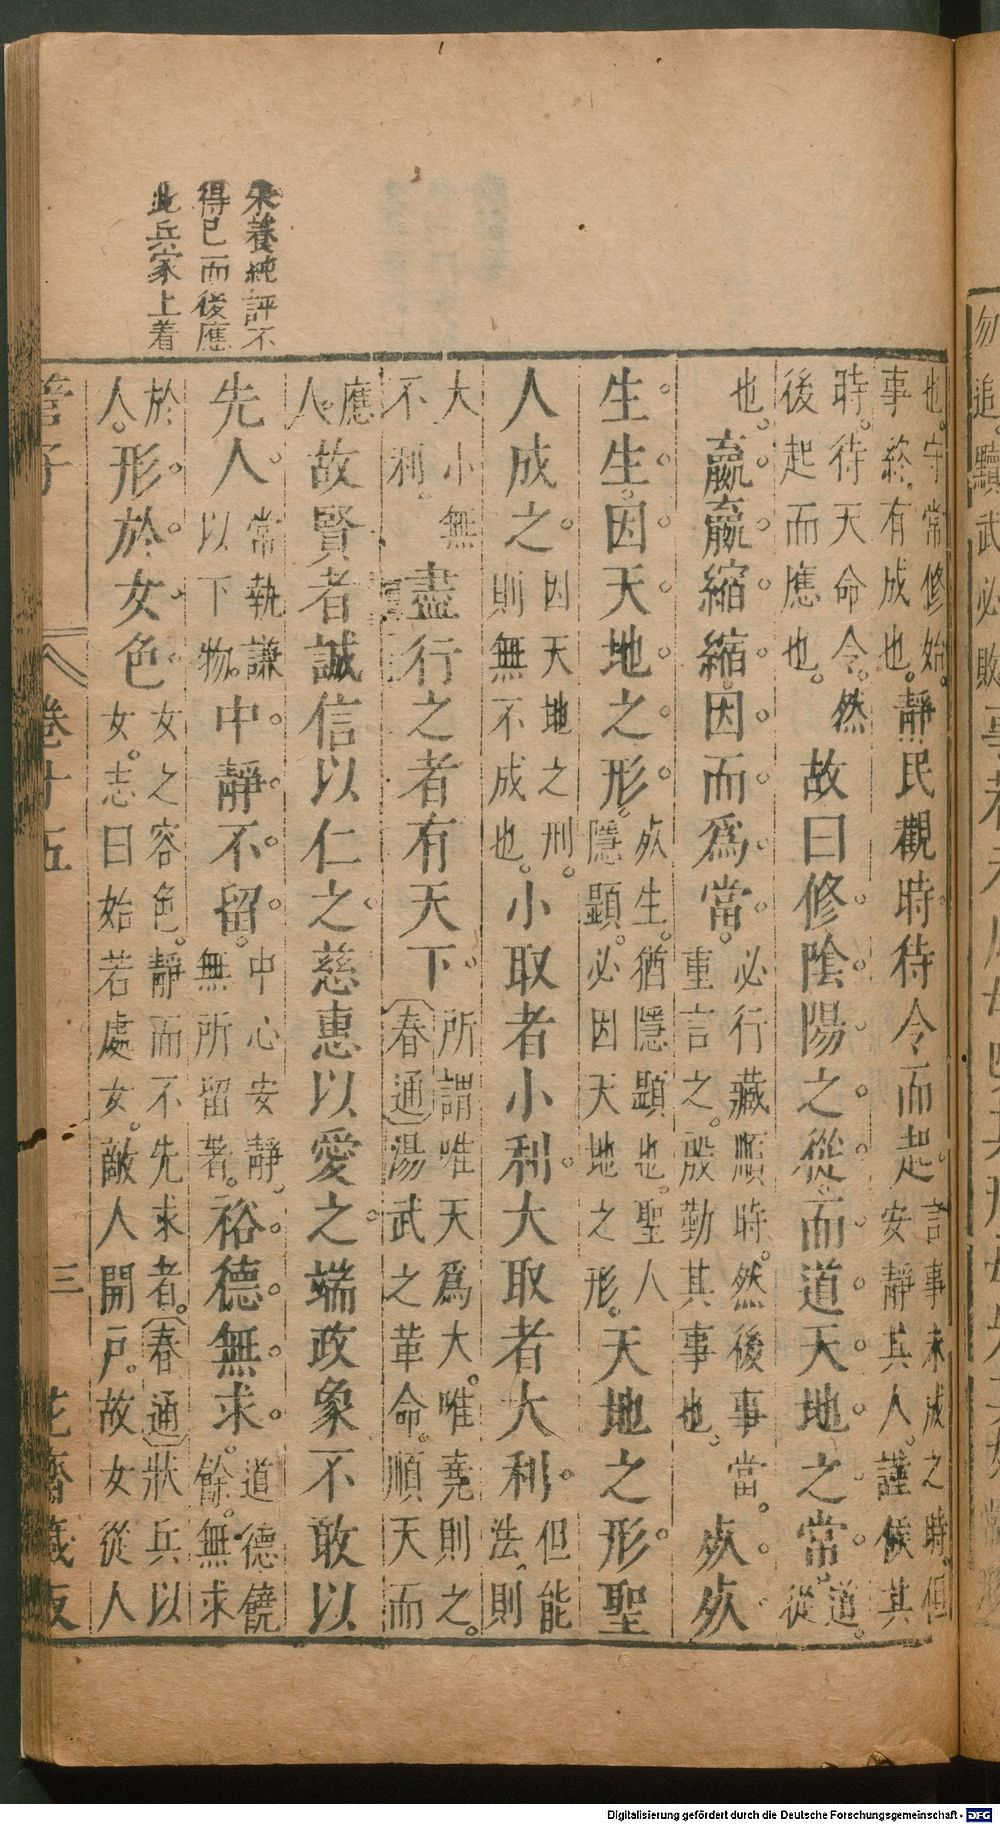 朱養純評不
得已而後應
此兵家上着
也。守常修始。事終。有成也。靜民觀時待令而起。言事未成之時。但安靜其人。謹候其
時。待天命令。然後起而應也。故曰修陰陽之從。而道天地之常。道。從
也。嬴嬴縮縮。因而爲當。必行藏順時。然後事當。重言之。殷勤其事也。死死
生生。因天地之形。死生。猶隱顯也。聖人隱顯。必因天地之形。天地之形。聖
人成之。因天地之刑。則無不成也。小取者小利。大取者大利。但能法。則
大小無不利。盡行之者有天下。所謂唯天爲大。唯堯則之。春通湯武之革命。順天而
應人。故賢者誠信以仁之。慈惠以愛之。端政象不敢以
先人。常執謙以下物。中靜不留。中心安靜。無所留著。裕德無求。道德饒餘。無求
於人。形於女色。女之容色。靜而不先求者。春通狀兵以女。志曰始若處女。敵人開戶。故女從人
管子
卷十五
三
花齋藏板
勿追。黷武必敗
Digitalisierung gefördert durch die Deutsche Forschungsgemeinschaft - DFG